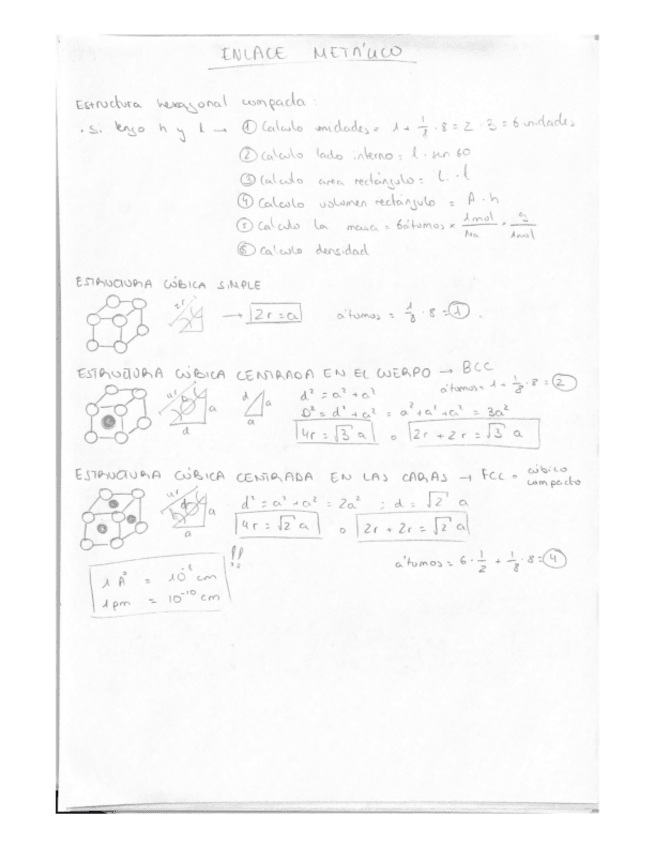 ENLACE METÁLICO
Estructura hexagonal compacta:
· Si tengo h y l → ① Calculo unidades = 1 + 1/8 · 8 = 2 · 3 = 6 unidades
② Calculo lado interno = l · sen 60
③ Calculo area rectángulo = L · l
④ Calculo volumen rectángulo = A · h
⑤ Calculo la masa = 6 átomos × 1mol/Na × g/1mol
⑥ Calculo densidad
ESTRUCTURA CÚBICA SIMPLE
2r → 2r = a átomos = 1/8 · 8 = ①.
ESTRUCTURA CÚBICA CENTRADA EN EL CUERPO → BCC
átomos = 1 + 1/8 · 8 = ②
4r a d d a a d² = a² + a²
D² = d² + a² = a² + a² + a² = 3a²
4r = √3 a o 2r + 2r = √3 a
ESTRUCTURA CÚBICA CENTRADA EN LAS CARAS → FCC = cúbico compacto
4r d a a d² = a² + a² = 2a² ; d = √2 a
4r = √2 a o 2r + 2r = √2 a
!! átomos = 6 · 1/2 + 1/8 · 8 = ④
1 Å = 10⁻⁸ cm
1 pm = 10⁻¹⁰ cm